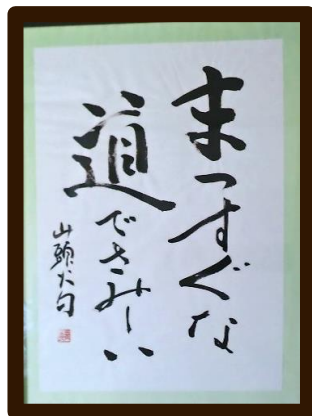 まっすぐな
道でさみしい
山頭火句